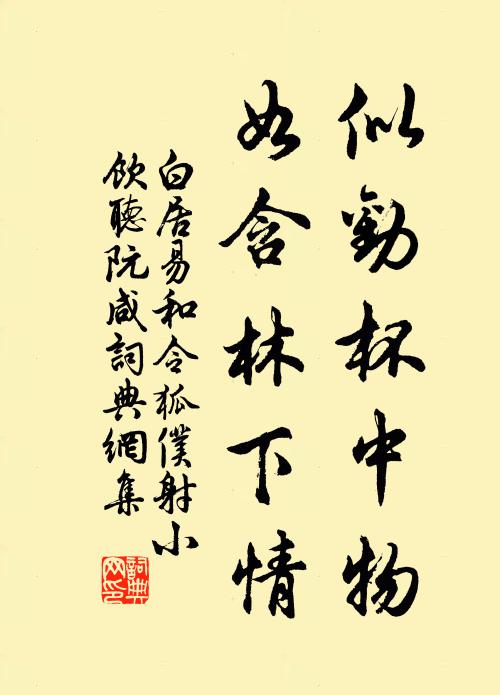 似勸杯中物
如含林下情
白居易和令狐僕射小
飲聽阮咸詞典網集
詞典
网印